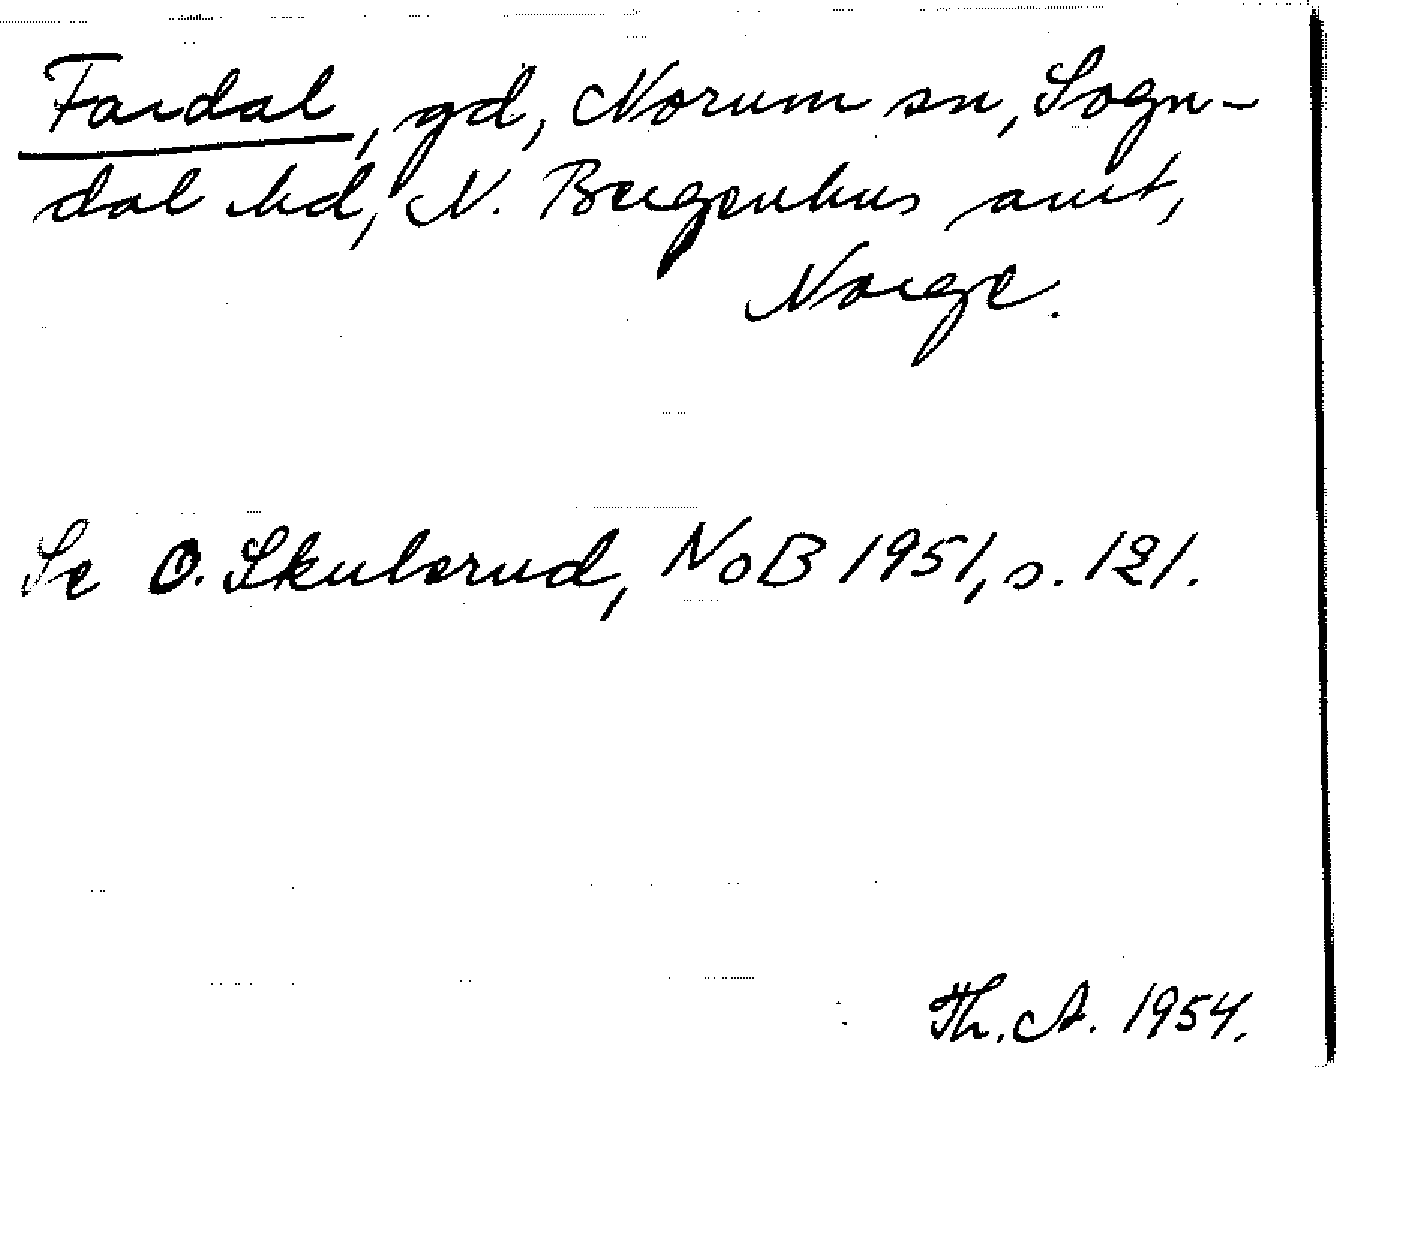 Fardal, gd, Norum sn, Sogn-
dal hd, N. Bergenhus amt,
Norge.
Se O. Skulerud, NoB 1951, s. 121.
Th. A. 1954.